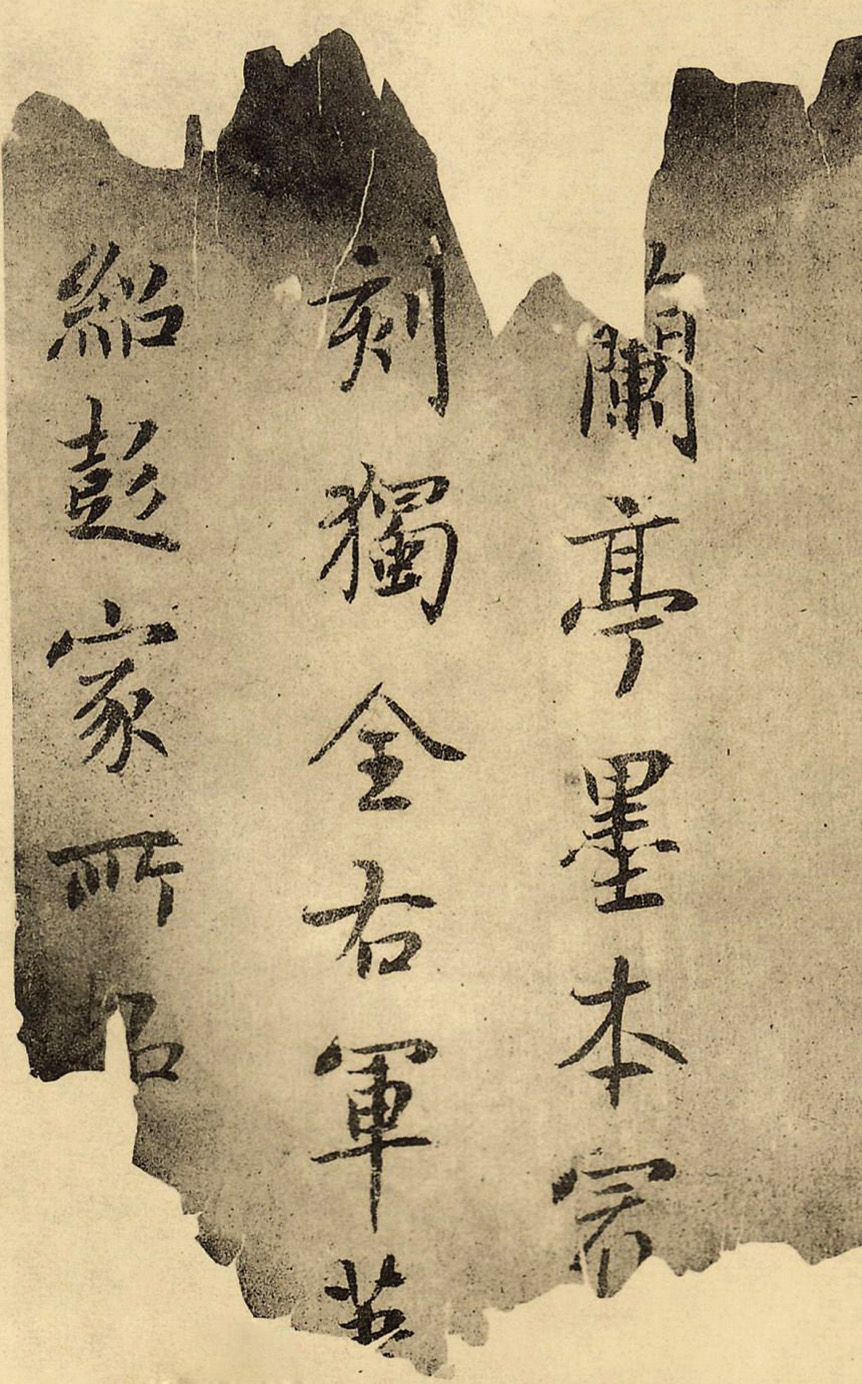 蘭亭墨本冣
刻獨全右軍
紹彭家所